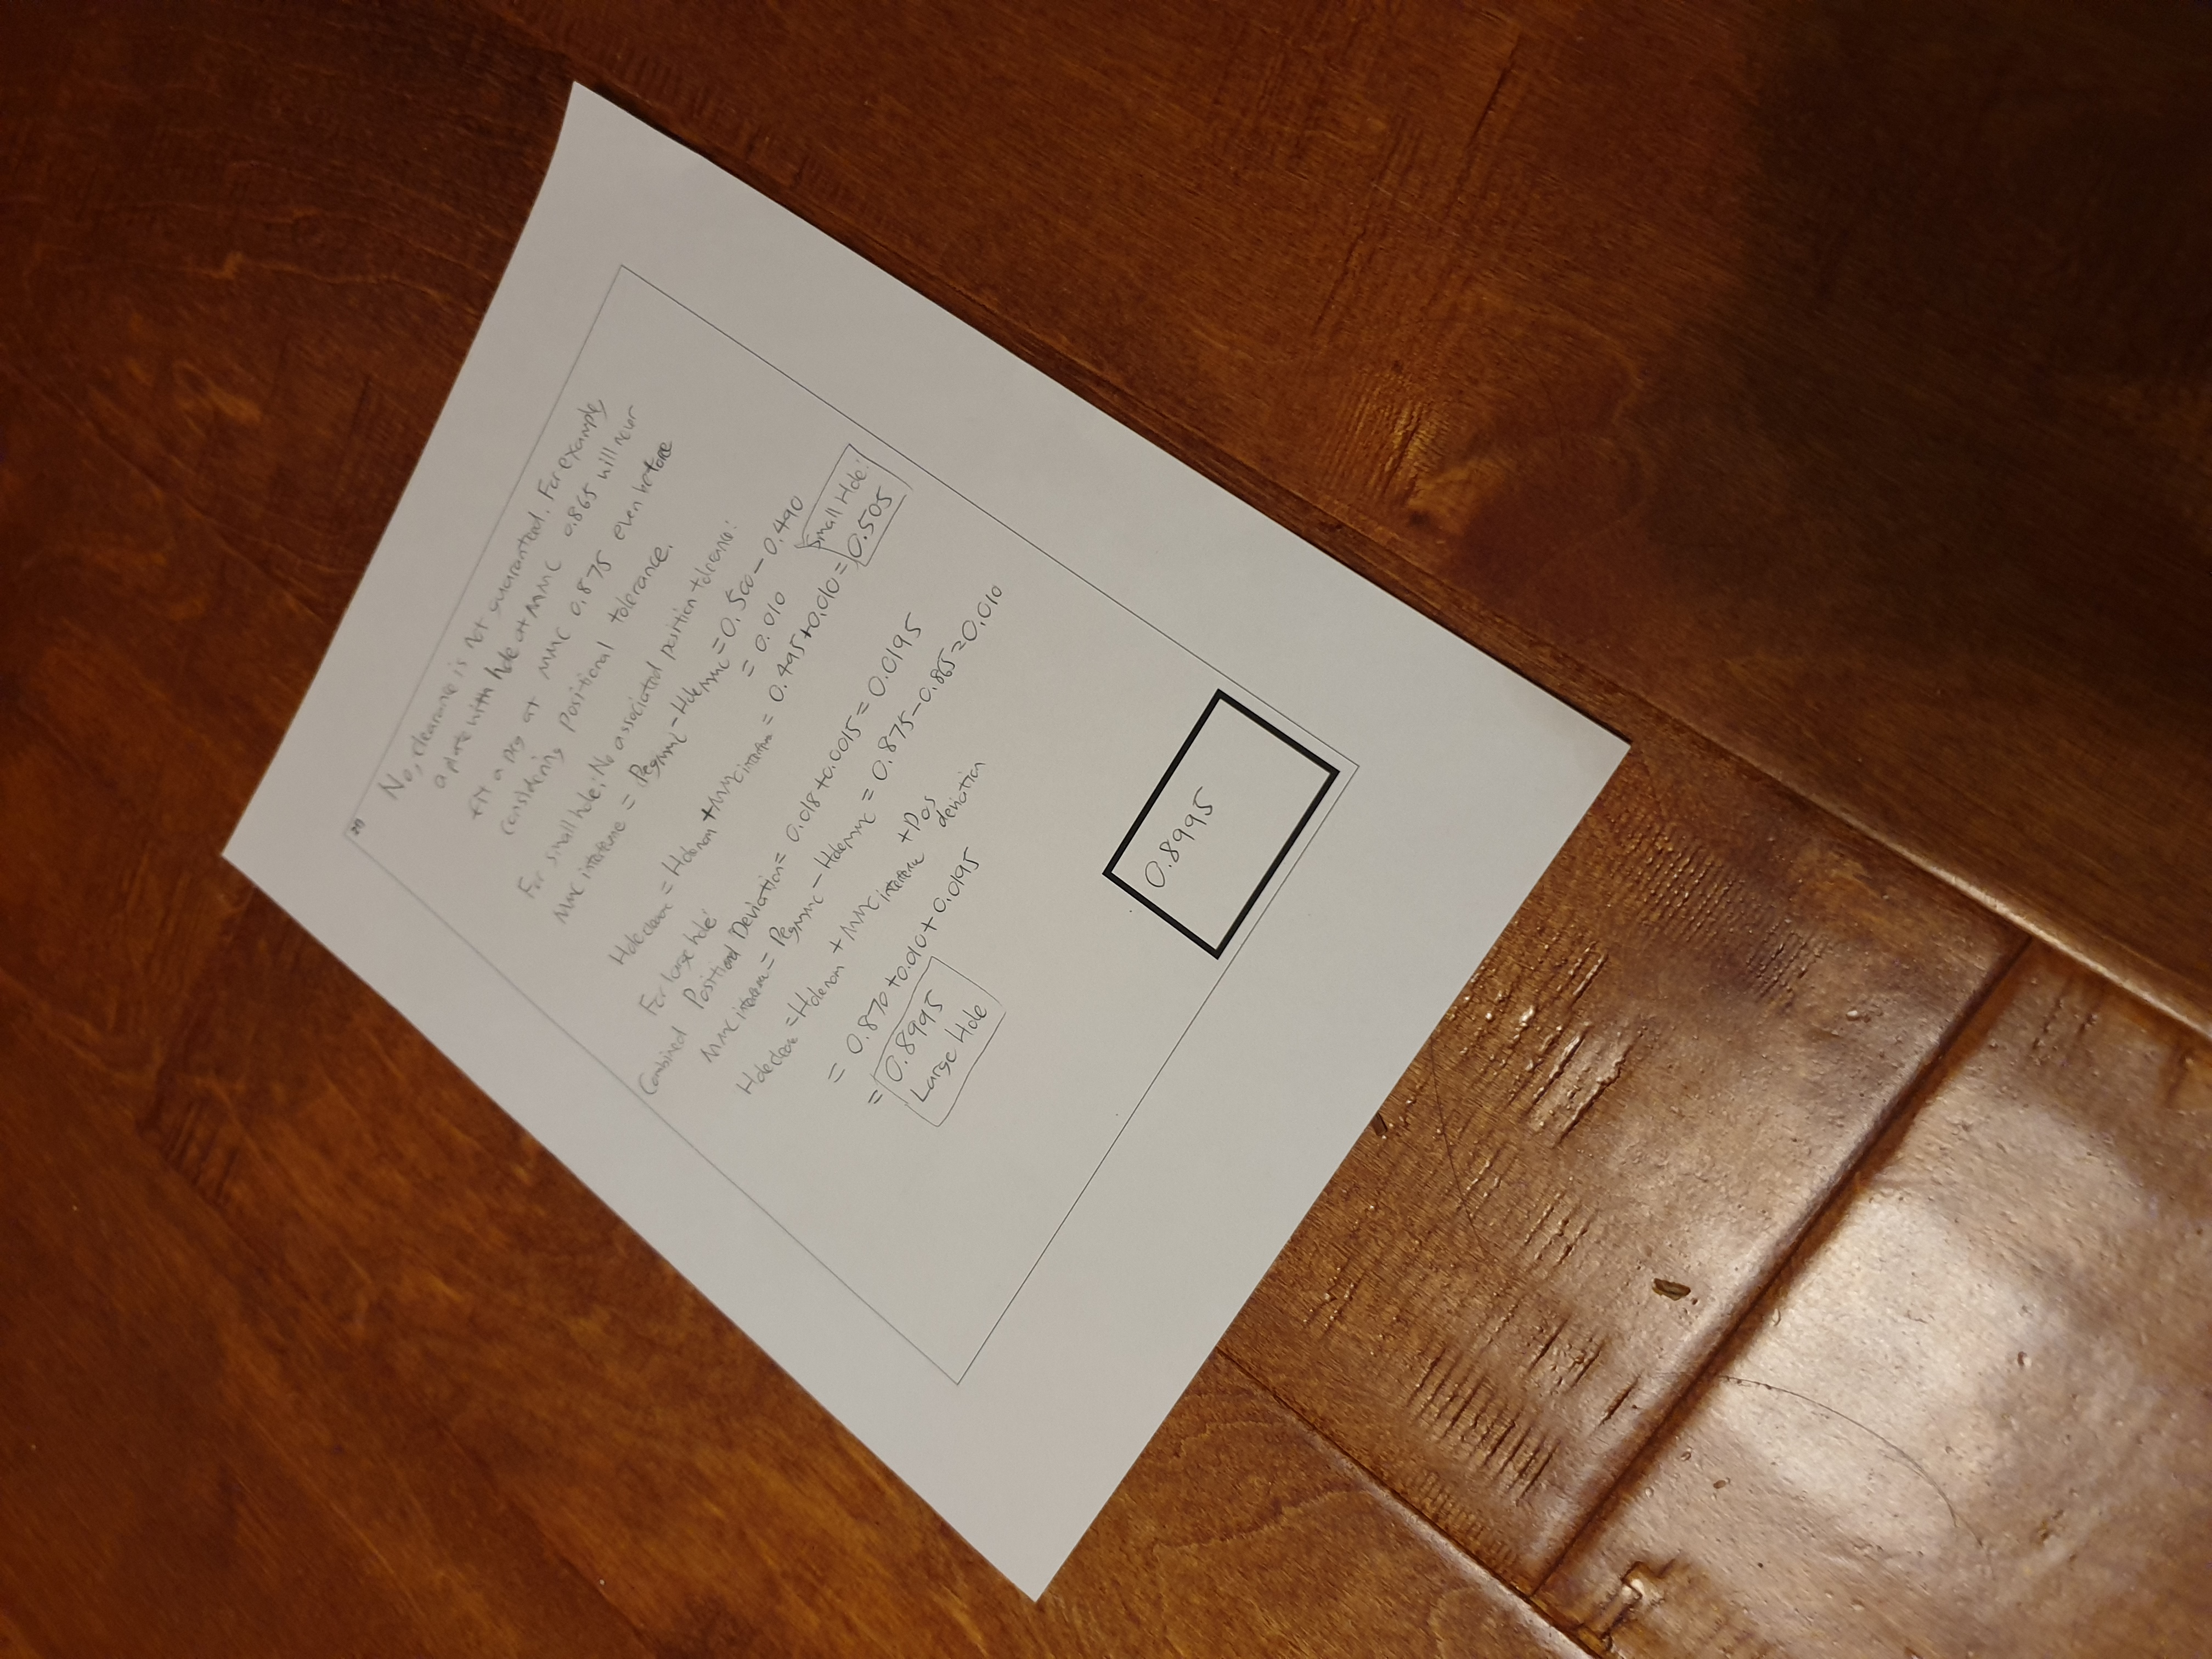 2f)
No, clearance is not guaranteed. For example,
a plate with hole at MMC 0.865 will never
fit a peg at MMC 0.875 even before
considering positional tolerance.
For small hole: No associated position tolerance:
MMC interference = PegMMC - HoleMMC = 0.500 - 0.490
= 0.010
Holeclear = Holenom + MMC interference = 0.495 + 0.010 =
Small Hole:
0.505
For large hole:
Combined Positional Deviation = 0.018 + 0.0015 = 0.0195
MMC interference = PegMMC - HoleMMC = 0.875 - 0.865 = 0.010
Holeclear = Holenom + MMC interference + Pos
deviation
= 0.870 + 0.010 + 0.0195
= 0.8995
Large Hole
0.8995